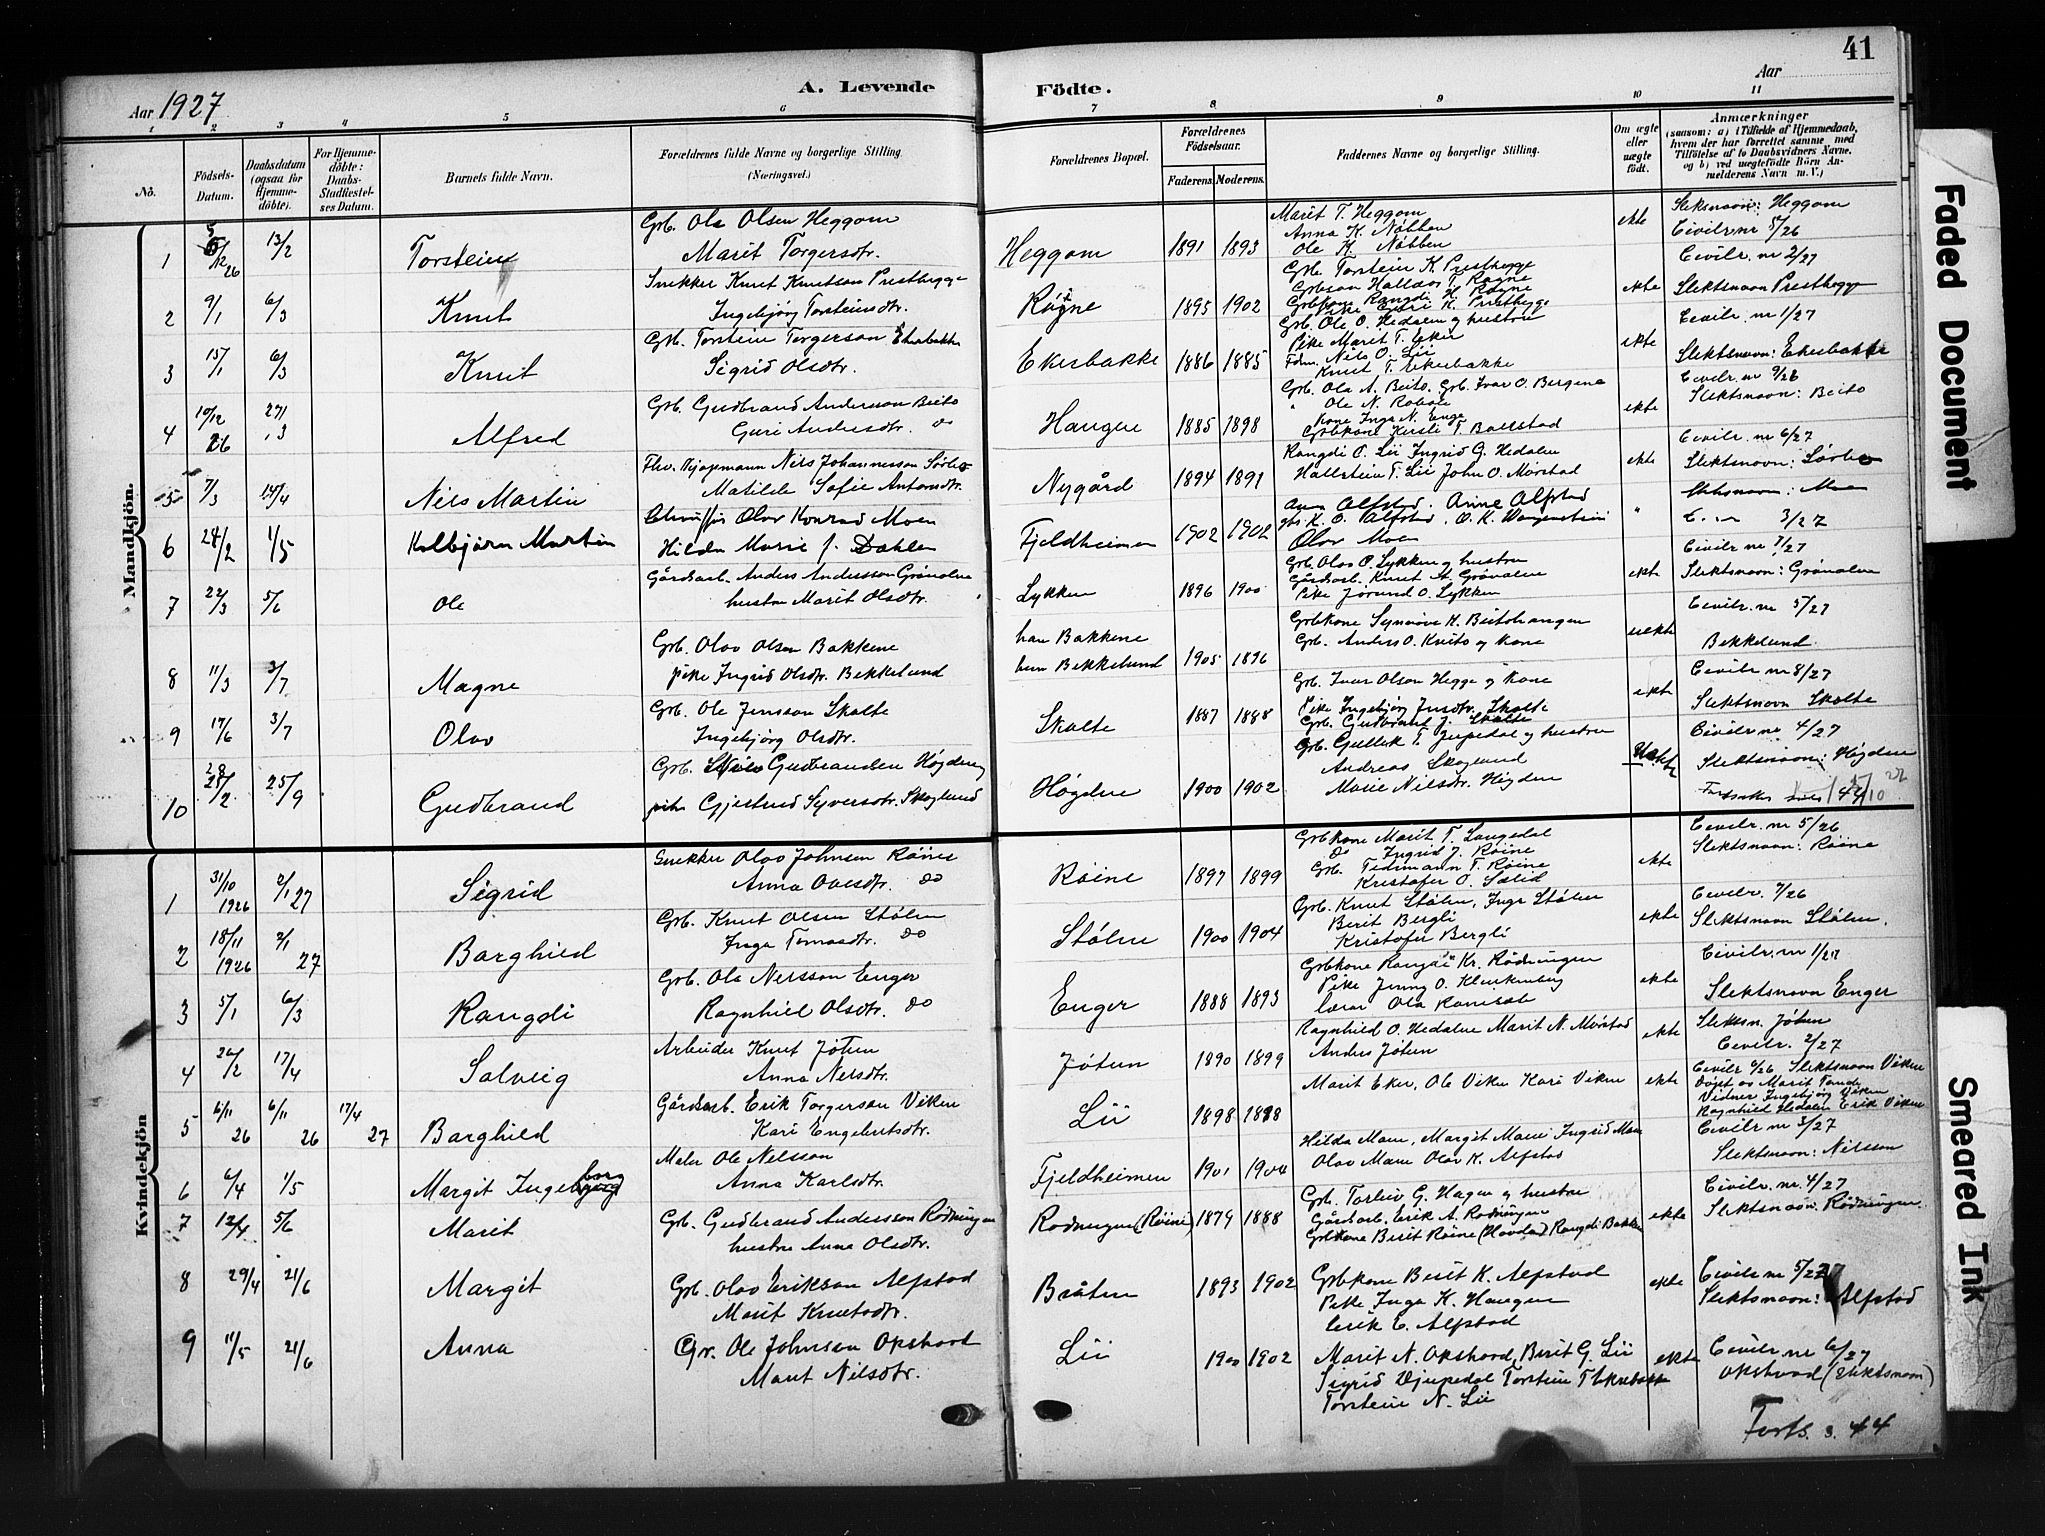 41
Aar 1927
A. Levende
Födte.
Aar
1 2 3 4 5 6 7 8 9 10 11
No.
Födsels-Datum.
Daabsdatum (ogsaa for Hjemmedöbte).
For Hjemmedöbte: Daabs-Stadfæstelses Datum.
Barnets fulde Navn.
Forældrenes fulde Navne og borgerlige Stilling.
(Næringsvei.)
Forældrenes Bopæl.
Forældrenes Födselsaar.
Faderens. Moderens.
Faddernes Navne og borgerlige Stilling.
Om ægte eller uægte födt.
Anmærkninger
(saasom: a) i Tilfælde af Hjemmedaab, hvem der har forrettet samme med Tilföielse af to Daabsvidners Navne. og b) ved uægtefödte Börn Anmelderens Navn m. V.)
Mandkjön.
1 5/12 26 13/2 Torstein
Grb. Ole Olsen Heggom
Marit Torgersdtr.
Heggom 1891 1893
Marit T. Heggom
Anna K. Nøbben
Ole K. Nøbben
ekte
Slektsnavn: Heggom
Civilr. nr 5/26
2 9/1 6/3 Knut
Snekker Knut Knutson Prestbegge
Ingebjørg Torsteinsdtr.
Røine 1895 1902
Grb. Torstein K. Prestbegge
ekte
Civilr. nr 2/27
Slektsnavn Prestbegge
3 15/1 6/3 Knut
Grb. Torstein Torgerson Ekerbakke
Sigrid Olsdtr.
Ekerbakke 1886 1885
Grb. Ole O. Hedalen og hustru
Pike Marit T. Eker
Fdm. Nils O. Lii
Knut T. Ekerbakke
ekte
Civilr. nr 1/27
Slektsnavn: Ekerbakke
4 10/12 26 27/3 Alfred
Grb. Gudbrand Anderson Beito
Guri Andersdtr. do
Haugen 1885 1898
Grb. Ola A. Beito. Grb. Ivar O. Bergene
Ole N. Robøle
Kone Inga N. Enge
ekte
Civilr. nr 9/26
Slektsnavn: Beito
5 7/3 14/4 Nils Martin
Fhv. Kjøpmann Nils Johannesson Sørbø
Matilde Sofie Antonsdtr.
Nygård 1894 1891
Rangdi O. Lii Ingrid G. Hedalen
Hallstein T. Lii John O. Mørstad
ekte
Civilr. nr 6/27
Slektsnavn: Sørbø
6 24/2 1/5 Kolbjørn Martin
Olav Konrad Moen
Hilda Marie J. Dæhlen
Fjeldheimen 1902 1902
Anna Alfstad. Anne Alfstad
Olov Moen
"
Slektsnavn: Moen
3/27
7 22/3 5/6 Ole
Gårdsarb. Anders Andersson Grønolen
hustru Marit Olsdtr.
Lykken 1896 1900
Grb. Olov O. Lykken og hustru
Gårdsarb. Knut A. Grønolen
Pike Jørund O. Lykken
ekte
Civilr nr 7/27
Slektsnavn: Grønolen
8 11/3 3/7 Magne
Grb. Olov Olsen Bakkene
pike Ingrid Olsdtr. Bekkelund
han Bakkene
hun Bekkelund 1905 1896
Grbkone Synnøve K. Beitohaugen
Grb. Anders O. Kvito og kone
uekte
Civilr. nr 5/27
Bekkelund.
9 17/6 3/7 Olov
Grb. Ole Jensson Skalte
Ingebjørg Olsdtr.
Skolte 1887 1888
Grb. Ivar Olson Hegge og kone
Pike Ingebjørg Jensdtr. Skolte
Grb. Gudbrand J. Skolte
ekte
Civilr nr 8/27
Slektsnavn Skolte
10 28/2 25/9 Gudbrand
Grb. Nils Gudbrandsen Høgden
pike Gjertrud Syversdtr. Skoglund
Høgden 1900 1902
Grb. Gullik T. Jupedal og hustru
Andreas Skoglund
Marie Nilsdtr. Høgden
Uekte
Civilr nr 4/27
Slektsnavn: Høgden
Kvindekjön
1 31/10 1926 2/1 27 Sigrid
Snekker Olov Johnsen Røine
Anna Ovesdtr. do
Røine 1897 1899
Grbkone Marit T. Langedal
do Ingrid J. Røine
Grb. Tidemann T. Røine
Kristofer O. Sælid
ekte
Civilr. nr 5/26
Slektsnavn: Røine
2 18/11 1926 2/1 27 Borghild
Grb. Knut Olsen Stølen
Inga Tomasdtr. do
Stølen 1900 1904
Grb. Knut Stølen, Inga Stølen
Berit Bergli
Kristofer Bergli
ekte
Civilr. 7/26
Slektsnavn Stølen.
3 5/1 6/3 Rangdi
Grb. Ola Nersson Enger
Ragnhild Olsdtr. do
Enger 1888 1893
Grbkone Rangdi Kr. Rødningen
Pike Jenny O. Klinkenberg
Lærer Ola
ekte
Civilr. nr 1/27
Slektsnavn Enger
4 20/2 17/4 Solveig
Arbeider Knut Jøtun
Anna Nersdtr.
Jøtun 1890 1899
Ragnhild O. Hedalen Marit N. Mørstad
Anders Jøtun
ekte
Slektsn. Jøtun
Civilr. 2/27
5 6/11 26 6/11 26 17/4 27 Borghild
Gårdsarb. Erik Torgerson Viken
Kari Engebretsdtr.
Lii 1898 1898
Marit Eker, Ole Viken Kari Viken
ekte
Civilr 6/26 Slektsnavn Viken
Døpt av Marit
Vidner Ingebjørg Viken
Ragnhild Hedalen Erik Viken
6 6/4 1/5 Margit Ingeborg
Maler Ole Nelsson
Anna Karlsdtr.
Fjeldheimen 1901 1904
Hilda Moen, Margit Moen Ingrid Moen
Olov Moen Olov K. Alfstad
Civilr nr 3/27
Slektsnavn: Nilsson
7 12/4 5/6 Marit
Grb. Gudbrand Andersson Rødningen
hustru Anna Olsdtr.
Rødningen (Røine) 1879 1888
Grb. Torleiv G. Hagen og hustru
Gårdsarb. Erik A. Rødningen
Grbkone Berit Røine (Hovda) Rangdi Bakken
ekte
Civilr. nr. 4/27
Slektsnavn: Rødningen.
8 29/4 21/6 Margit
Grb. Olov Erikson Alfstad
Marit Knutsdtr.
Bråten 1893 1902
Grbkone Berit K. Alfstad
Pike Inga K. Haugen
Erik E. Alfstad
ekte
Civilr nr 5/27
Slektsnavn: Alfstad
9 11/5 21/6 Anna
Gr. Ole Johnson Opshovd
Marit Nilsdtr.
Lii 1900 1902
Marit N. Opshovd, Berit G. Lii
Sigrid Djupedal Torstein T Ekerbakke
Torstein N. Lii
ekte
Civilr nr 6/27
Opshovd (Slektsnavn)
Forts. s. 44
Faded Document
Smeared Ink